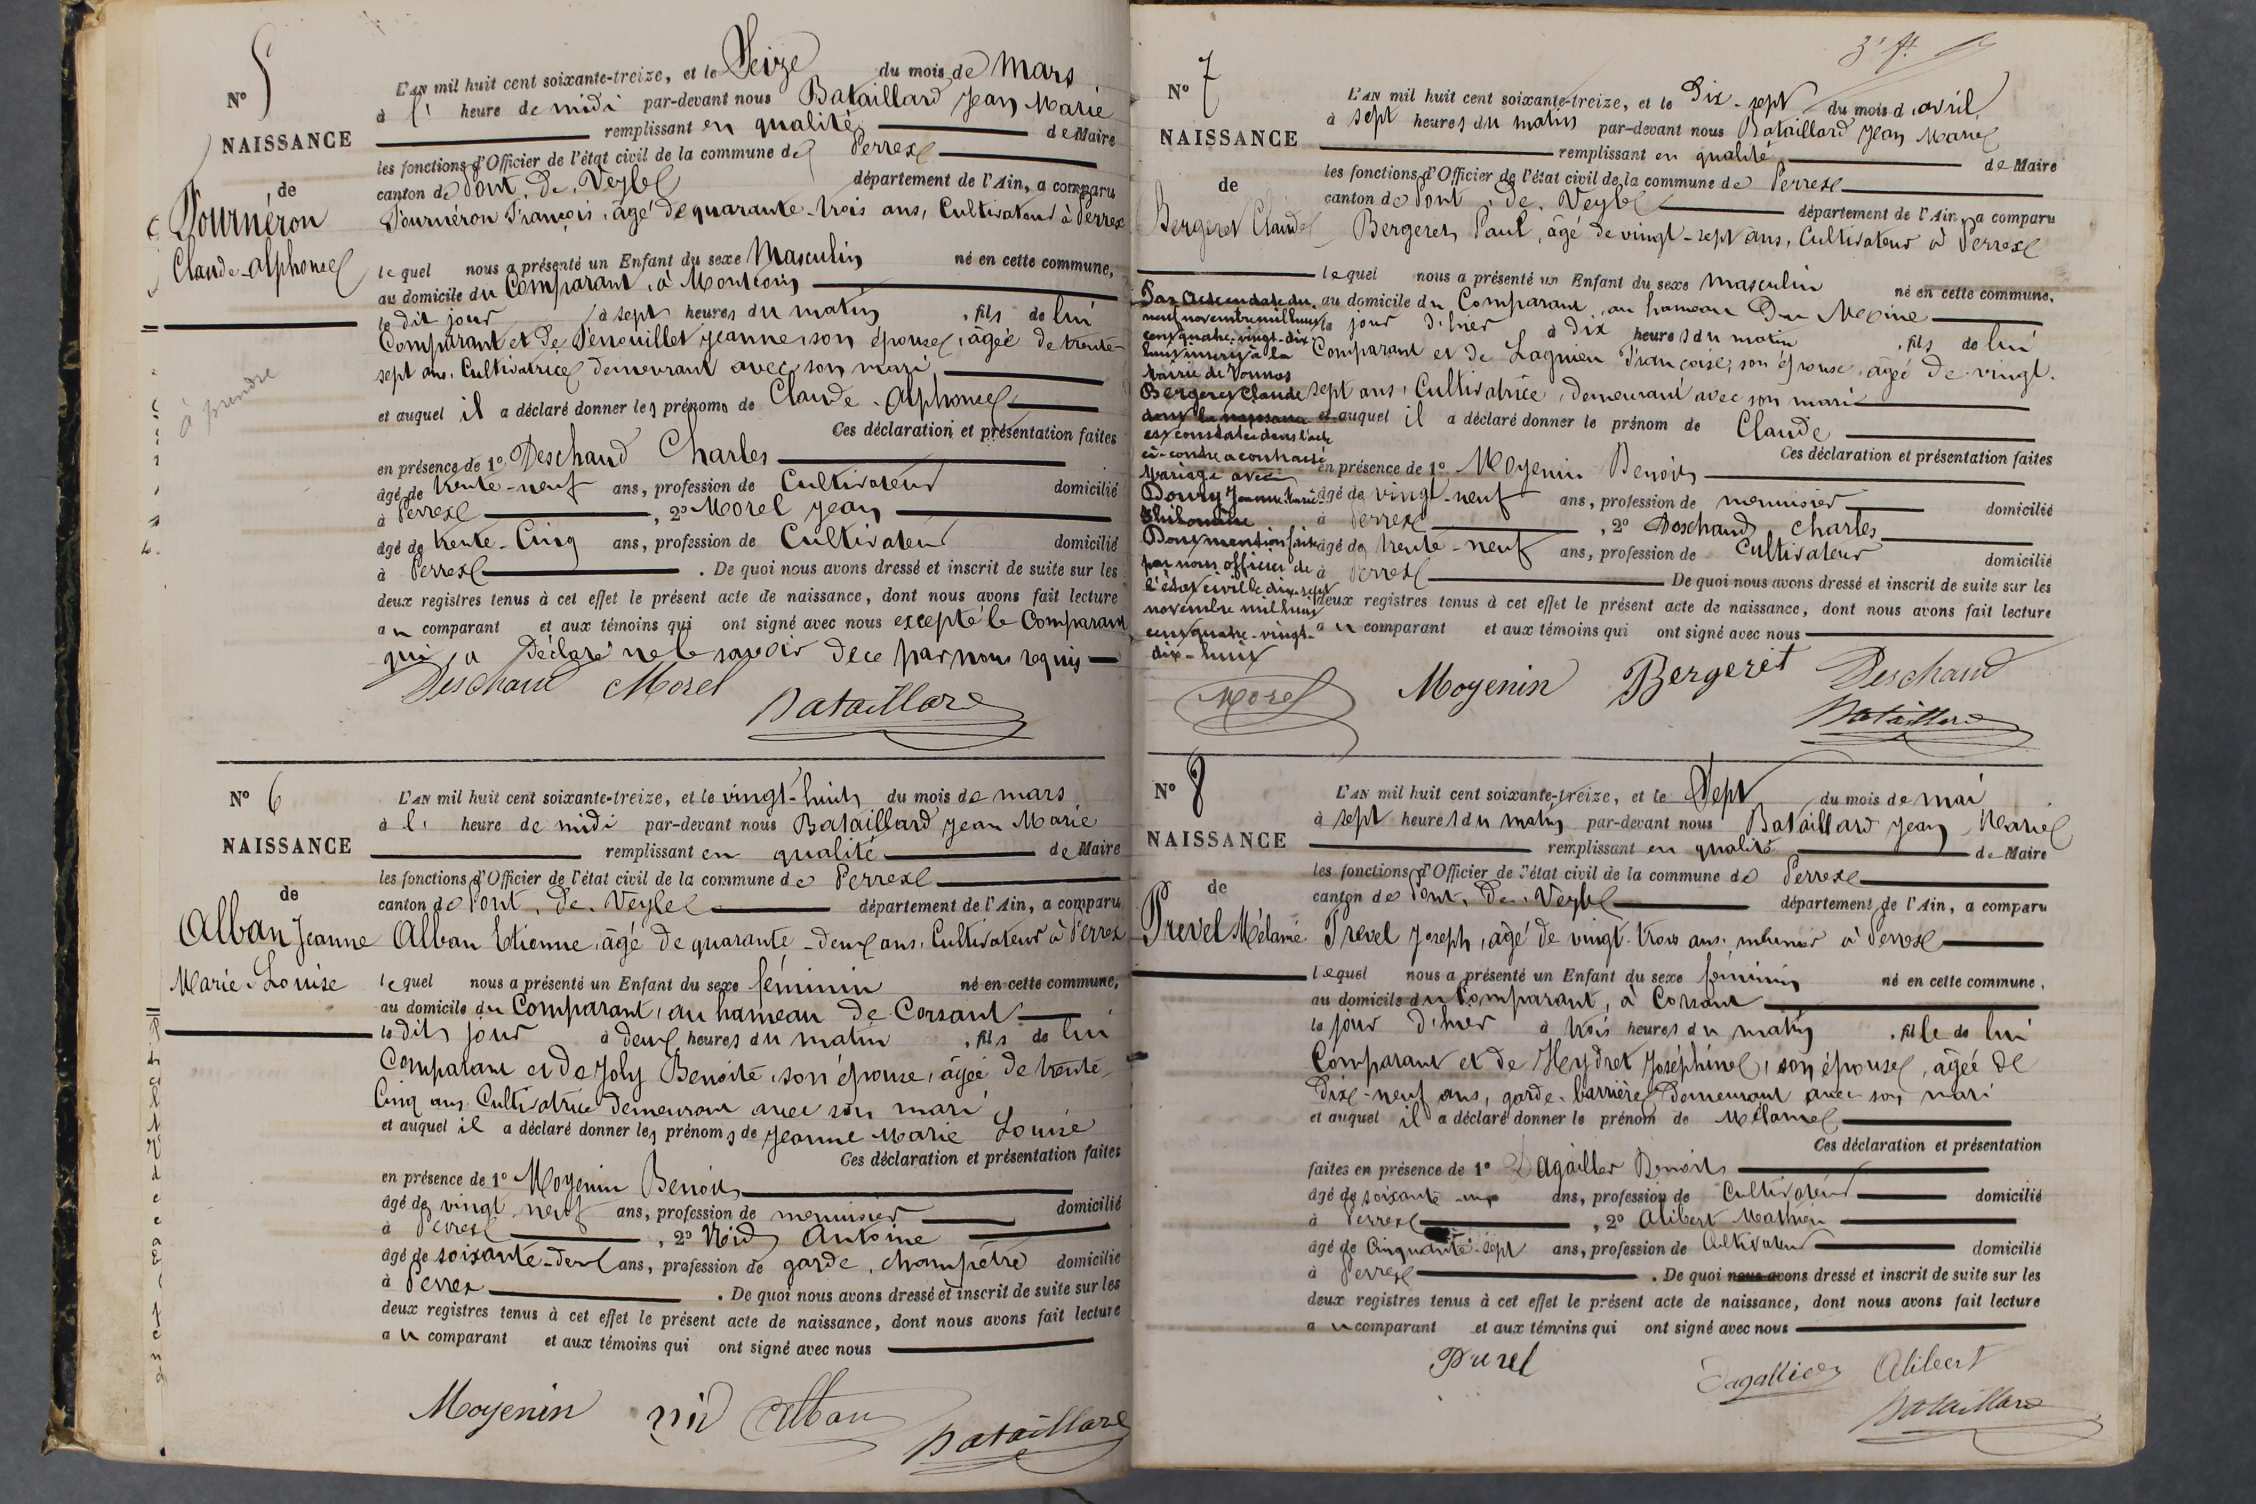 N° 5
NAISSANCE
de
Fournéron
Claude-Alphonse
à prendre
L'AN mil huit cent soixante-treize, et le Seize du mois de Mars
à l' heure de midi par-devant nous Bataillard Jean Marie
remplissant en qualité de Maire
les fonctions d'Officier de l'état civil de la commune de Perrex
canton de Pont-de-Veyle département de l'Ain, a comparu
Fournéron François, âgé de quarante-trois ans, Cultivateur à Perrex
lequel nous a présenté un Enfant du sexe Masculin né en cette commune,
au domicile du Comparant, à Montcoin
le dit jour à sept heures du matin, fils de lui
Comparant et de Fenouillet Jeanne, son épouse, âgée de trente-
sept ans, Cultivatrice demeurant avec son mari
et auquel il a déclaré donner les prénoms de Claude-Alphonse
Ces déclaration et présentation faites
en présence de 1° Deschaud Charles
âgé de trente-neuf ans, profession de Cultivateur domicilié
à Perrex, 2° Morel Jean
âgé de trente-Cinq ans, profession de Cultivateur domicilié
à Perrex. De quoi nous avons dressé et inscrit de suite sur les
deux registres tenus à cet effet le présent acte de naissance, dont nous avons fait lecture
au comparant et aux témoins qui ont signé avec nous excepté le Comparant
qui a Déclaré ne le savoir de ce par nous requis
Deschaud Morel
Bataillard
N° 6
NAISSANCE
de
Alban Jeanne
Marie-Louise
L'AN mil huit cent soixante-treize, et le vingt-huit du mois de mars
à l' heure de midi par-devant nous Bataillard Jean Marie
remplissant en qualité de Maire
les fonctions d'Officier de l'état civil de la commune de Perrex
canton de Pont-de-Veyle département de l'Ain, a comparu
Alban Etienne, âgé de quarante-deux ans, Cultivateur à Perrex
lequel nous a présenté un Enfant du sexe féminin né en cette commune,
au domicile du Comparant, au hameau de Corsant
le dit jour à deux heures du matin, fils de lui
Comparant et de Joly Benoite, son épouse, âgée de trente-
Cinq ans, Cultivatrice demeurant avec son mari
et auquel il a déclaré donner les prénoms de Jeanne Marie Louise
Ces déclaration et présentation faites
en présence de 1° Moyenin Benoit
âgé de vingt-neuf ans, profession de menuisier domicilié
à Perrex, 2° Nid Antoine
âgé de soixante-deux ans, profession de garde-champêtre domicilié
à Perrex. De quoi nous avons dressé et inscrit de suite sur les
deux registres tenus à cet effet le présent acte de naissance, dont nous avons fait lecture
au comparant et aux témoins qui ont signé avec nous
Moyenin Nid Alban
Bataillard
N° 7
NAISSANCE
de
Bergeret Claude
Par Acte en date du
neuf novembre mil huit
cent quatre-vingt-dix
huit inscrit à la
Mairie de Vonnas
Bergeret Claude
dont la naissance
est constatée dans l'acte
ci-contre a contracté
Mariage avec
Dony Jeanne Marie
Philomène
Dont mention faite
par nous officier de
l'état civil le dix-sept
novembre mil huit
cent quatre-vingt-
dix-huit
Morel
L'AN mil huit cent soixante-treize, et le Dix-sept du mois d'avril
à sept heures du matin par-devant nous Bataillard Jean Marie
remplissant en qualité de Maire
les fonctions d'Officier de l'état civil de la commune de Perrex
canton de Pont-de-Veyle département de l'Ain, a comparu
Bergeret Paul, âgé de vingt-sept ans, Cultivateur à Perrex
lequel nous a présenté un Enfant du sexe masculin né en cette commune,
au domicile du Comparant, au hameau Du Mexine
le jour d'hier à dix heures du matin, fils de lui
Comparant et de Lagnieu Françoise, son épouse, âgée de vingt-
sept ans, Cultivatrice, demeurant avec son mari
et auquel il a déclaré donner le prénom de Claude
Ces déclaration et présentation faites
en présence de 1° Moyenin Benoit
âgé de vingt-neuf ans, profession de menuisier domicilié
à Perrex, 2° Deschaud Charles
âgé de trente-neuf ans, profession de Cultivateur domicilié
à Perrex De quoi nous avons dressé et inscrit de suite sur les
deux registres tenus à cet effet le présent acte de naissance, dont nous avons fait lecture
au comparant et aux témoins qui ont signé avec nous
Moyenin Bergeret Deschaud
Bataillard
N° 8
NAISSANCE
de
Prevel Mélanie
L'AN mil huit cent soixante-treize, et le Sept du mois de mai
à sept heures du matin par-devant nous Bataillard Jean Marie
remplissant en qualité de Maire
les fonctions d'Officier de l'état civil de la commune de Perrex
canton de Pont-de-Veyle département de l'Ain, a comparu
Prevel Joseph, âgé de vingt-trois ans, à Perrex
lequel nous a présenté un Enfant du sexe féminin né en cette commune,
au domicile du Comparant, à Corsant
le jour d'hier à trois heures du matin, fille de lui
Comparant et de Heydret Joséphine, son épouse, âgée de
Dix-neuf ans, garde-barrière demeurant avec son mari
et auquel il a déclaré donner le prénom de Mélanie
Ces déclaration et présentation
faites en présence de 1° Dagallier Benoit
âgé de soixante ans, profession de Cultivateur domicilié
à Perrex, 2° Alibert Mathieu
âgé de Cinquante-sept ans, profession de Cultivateur domicilié
à Perrex. De quoi nous avons dressé et inscrit de suite sur les
deux registres tenus à cet effet le présent acte de naissance, dont nous avons fait lecture
au comparant et aux témoins qui ont signé avec nous
Prevel
Dagallier Alibert
Bataillard